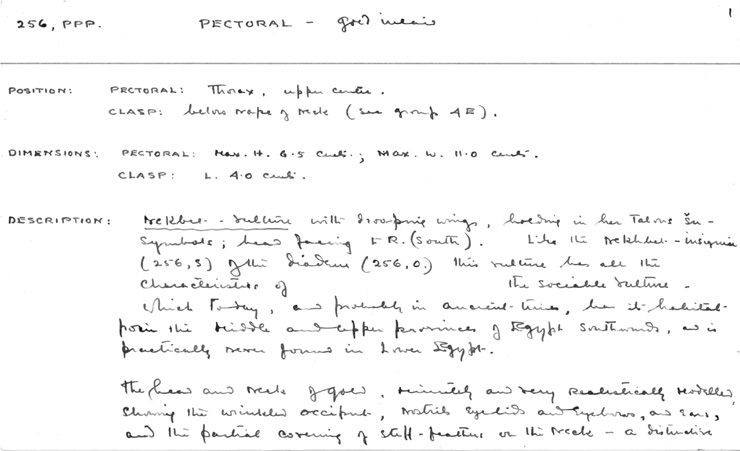 256, PPP. PECTORAL - gold inlaid
1
POSITION: PECTORAL: Thorax, upper centre.
CLASP: below nape of neck (see group AE).
DIMENSIONS: PECTORAL: Max. H. 6.5 cents.; Max. W. 11.0 cents.
CLASP: L. 4.0 cents.
DESCRIPTION: Nekhbet - vulture with drooping wings, holding in her Talons šn-
symbols; head facing to R. (South). Like the Nekhbet - insignia
(256, S) of the diadem (256, O.) this vulture has all the
characteristics of the sociable vulture -
which today, and probably in ancient-times, has its habitat-
from the Middle and upper provinces of Egypt southwards, and is
practically never found in Lower Egypt.
The head and neck of gold, minutely and very realistically modelled,
showing the wrinkled occiput, nostrils eyelids and eyebrows, and ears,
and the partial covering of stiff-feathers on the neck - a distinctive